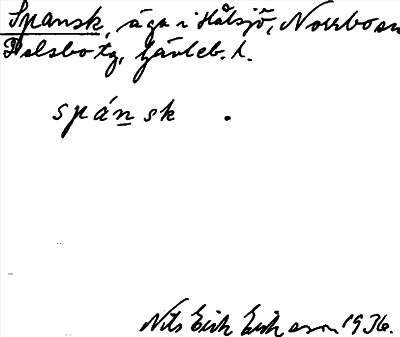 Spansk, äga i Hålsjö, Norrbo sn
Helsbo tg, Gävleb. l.
spánsk .
Nils Erik Eriksson 1936.